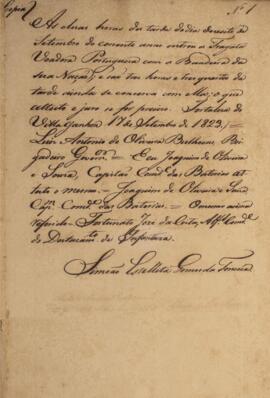 Copia
Nº 1
As duas horas da tarde do dia dezesete de
Setembro do corrente anno entrou a Fragata
Veadora Portugueza com a Bandeira da
sua Nação; e são tres horas e tres quartos da
tarde ainda se conserva com ella; o que
attesto e juro se for preciso. Fortaleza de
Villaganhon 17 de Setembro de 1823 =
Luiz Antonio de Oliveira Bulhoens Bri
gadeiro Govern.or = Eu Joaquim de Oliveira
e Souza, Capitão Comd.e das Baterias at
testo o mesmo. = Joaquim de Oliveira e Souza
Cap.m Comd.e das Baterias. = O mesmo acima
referido. = Fortunato José da Costa, Alf.s Comd.e
do Destacam.to de Infantaria.
Simeão Estellita Gomes da Fonseca